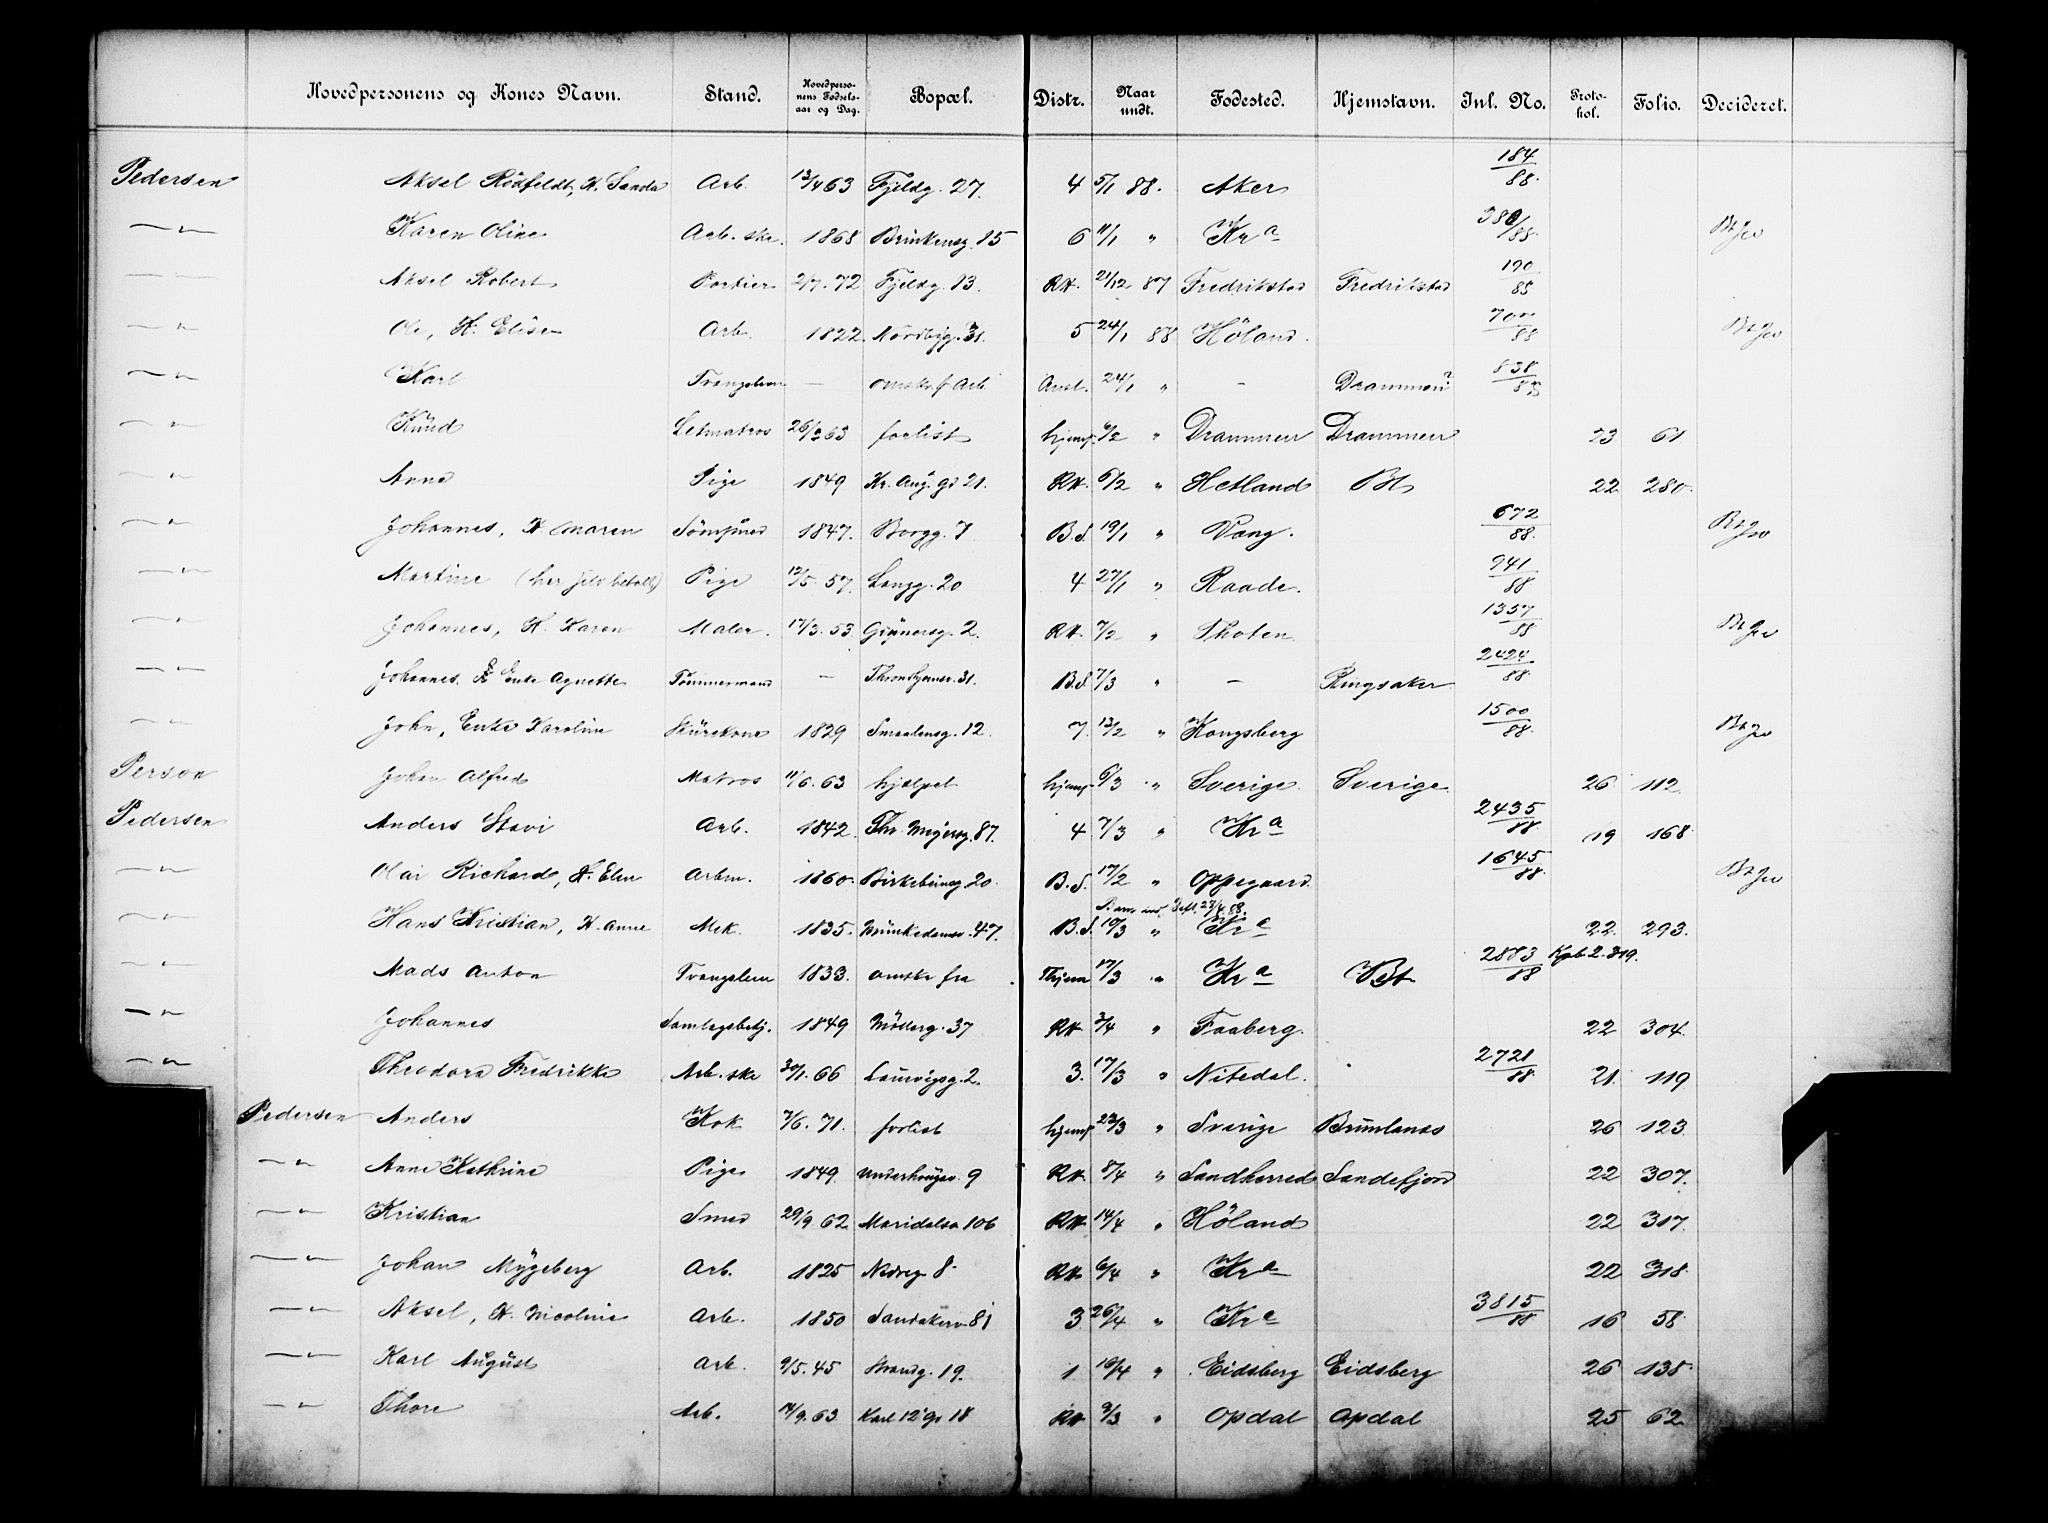 Hovedpersonens og Kones Navn. Stand. Hovedpersonens Fødselsaar og Dag. Bopæl. Distr. Naar undt. Fødested. Hjemstavn. Jnl. No. Protokol. Folio. Decideret.
Pedersen Aksel Rödfeldt, H. Sanda Arb. 12/4 63 Fjeldg. 27. 4 5/1 88. Aker 184/88
— " — Karen Oline Arb. ske. 1868 Brinkensg. 15 6 11/1 " Kra 380/88
— " — Aksel Robert Portier 2/7. 72 Fjeldg. 13. RH. 21/12 87 Fredrikstad Fredrikstad 190/88
— " — Ole, H. Elise Arb. 1822. Nordbyg. 31. 5 24/1 88 Höland. 700/88
— " — Karl Tvangslem — omsk. f. Arb. Anst. 24/1 " — Drammen? 838/88
— " — Knud Letmatros 26/2 63 forlist hjemf. 6/2 " Drammen Drammen 23 61
— " — Anna Pige 1849 Kr. Aug. gd 21. RH. 6/2 " Hetland 22 280.
— " — Johannes, H Maren 1847. Borgg. 7 B.S. 19/1 " Vang. 672/88.
— " — Martine (har selv betalt) Pige 12/5. 57. Langg. 20 4 27/1 " Raade. 941/88
— " — Johannes, H. Karen Maler. 17/3. 53 Grünersg. 2. RH. 7/2 " Thoten 1357/88
— " — Johannes. Enke Agnette Tömmermand — Throndhjemsv. 31. B.S. 7/3 " — Ringsaker 2424/88.
— " — John, Enke Karoline Skurekone 1829 Smaalensg. 12. 7. 13/2 " Kongsberg 1500/88.
Person Johan Alfred Matros 11/6. 63 hjælpet hjemf. 6/3 " Sverige Sverige 26 112.
Pedersen Anders Stavi Arb. 1842. Thv. Meyersg. 87. 4 7/3 " Kra 2435/88 19 168
— " — Olai Richard, H. Elen Arbm. 1860. Birkebeinsg. 20. B.S. 17/2 " Oppegaard. 1645/88
— " — Hans Kristian, H. Anne Mek. 1835. Munkedamsv. 47. B.S. 10/3 " Kra 22. 293.
— " — Mads Anton Tvangslem 1833. omsk. fra Thjem 17/3 " Kra 2883/88 Kpb 2. 319.
— " — Johannes Samlagsbetj. 1849 Möllerg. 37 RH. 3/4 " Faaberg. 22 304.
— " — Theodora Fredrikke Arb. ske 30/1. 66 Laurvigsg. 2. 3. 17/3 " Nitedal. 2721/88 21. 119
Pedersen Anders Kok 7/6. 71. forlist hjemf. 23/3 " Sverige Brunlanæs 26 123.
— " — Anne Kathrine Pige 1849. Underhaugsv. 9 RH. 8/4 " Sandherred Sandefjord 22 307.
— " — Kristian Smed 29/9 62 Maridalsv. 106 RH. 14/4 " Höland 22 317.
— " — Johan Mygeberg Arb. 1825 Nedreg. 8. RH. 6/4 " Kra 22 318.
— " — Aksel, H. Nicoline Arb. 1850 Sandakerv. 81 3. 26/4 " Kra 3815/88 16 58.
— " — Karl August Arb. 9/5. 45 Strandg. 19. 1 16/4 " Eidsberg Eidsberg 26 138.
— " — Thore Arb. 14/9. 63 Karl 12' gd 18 RH. 9/3 " Opdal Opdal 25 62.